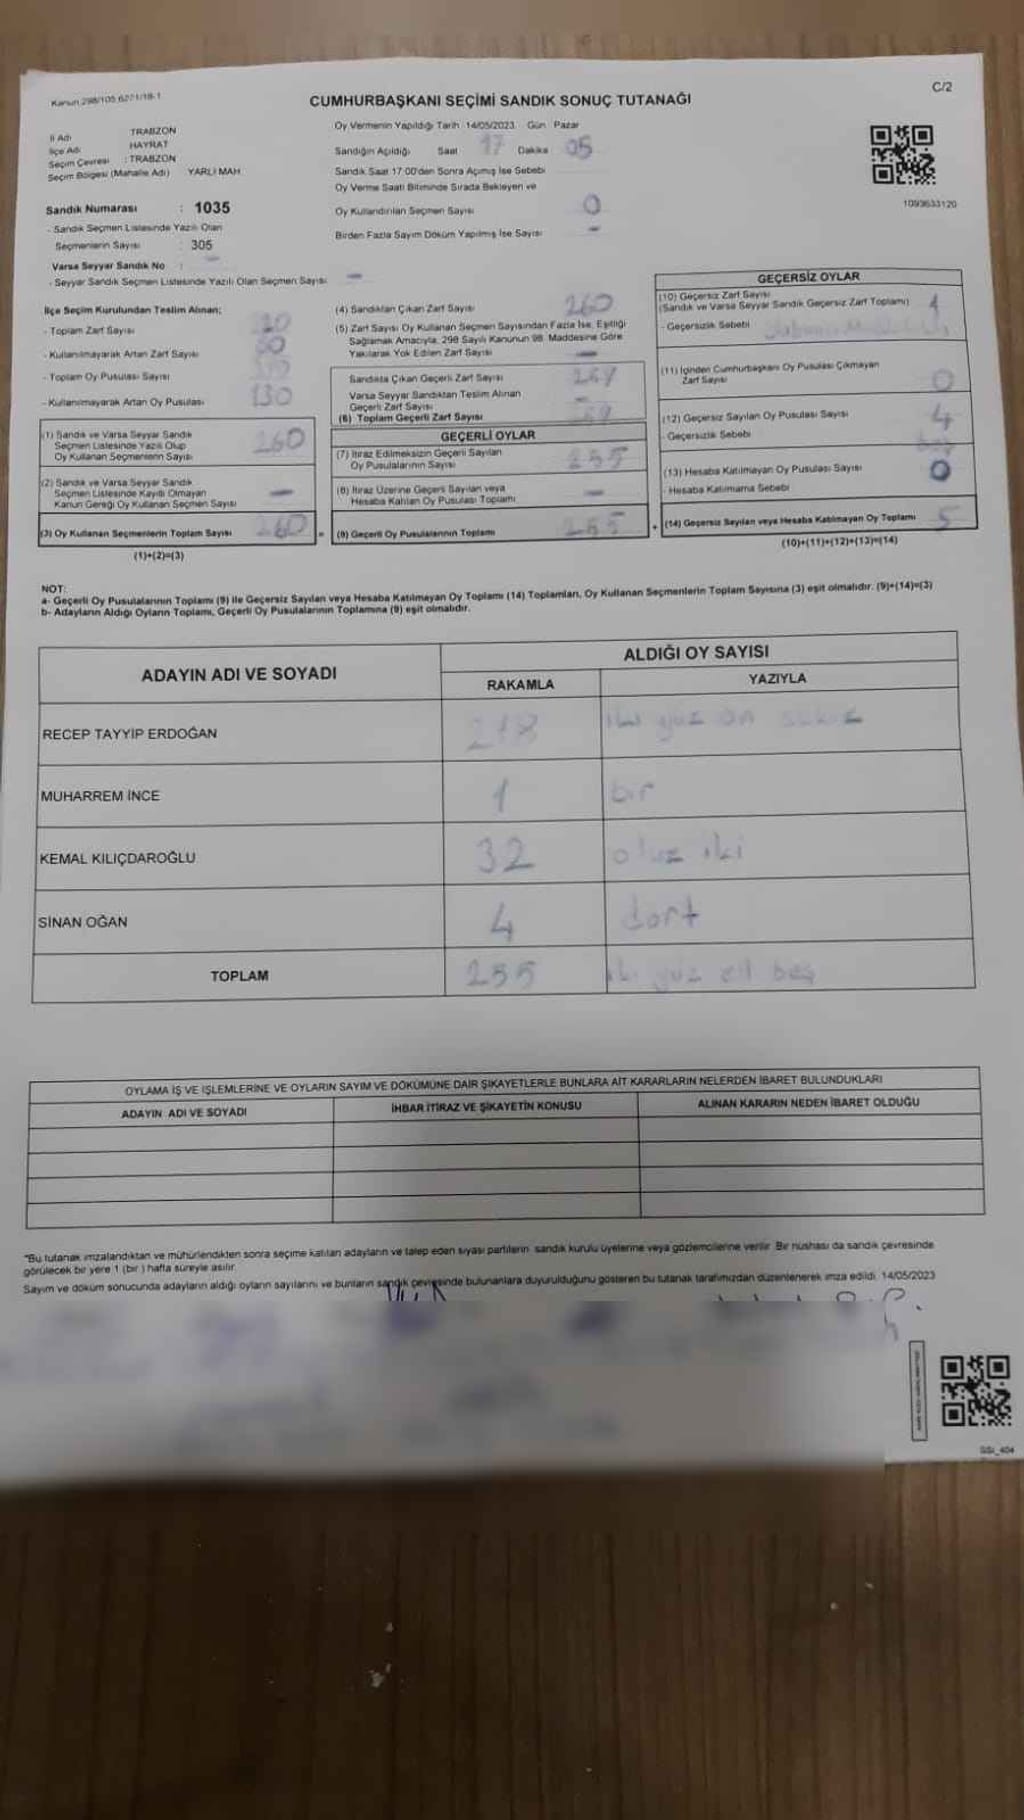 Kanun 298/105 6271/18-1
C/2
CUMHURBAŞKANI SEÇİMİ SANDIK SONUÇ TUTANAĞI
İl Adı TRABZON
İlçe Adı HAYRAT
Seçim Çevresi : TRABZON
Seçim Bölgesi (Mahalle Adı) YARLI MAH
Sandık Numarası : 1035
- Sandık Seçmen Listesinde Yazılı Olan
Seçmenlerin Sayısı : 305
Varsa Seyyar Sandık No : -
- Seyyar Sandık Seçmen Listesinde Yazılı Olan Seçmen Sayısı -
Oy Vermenin Yapıldığı Tarih 14/05/2023 Gün Pazar
Sandığın Açıldığı Saat 17 Dakika 05
Sandık Saat 17:00'den Sonra Açılmış İse Sebebi
Oy Verme Saati Bitiminde Sırada Bekleyen ve
Oy Kullandırılan Seçmen Sayısı 0
Birden Fazla Sayım Döküm Yapılmış İse Sayısı -
1093633120
İlçe Seçim Kurulundan Teslim Alınan;
- Toplam Zarf Sayısı
- Kullanılmayarak Artan Zarf Sayısı
- Toplam Oy Pusulası Sayısı
- Kullanılmayarak Artan Oy Pusulası 130
(1) Sandık ve Varsa Seyyar Sandık
Seçmen Listesinde Yazılı Olup
Oy Kullanan Seçmenlerin Sayısı 260
(2) Sandık ve Varsa Seyyar Sandık
Seçmen Listesinde Kayıtlı Olmayan
Kanun Gereği Oy Kullanan Seçmen Sayısı -
(3) Oy Kullanan Seçmenlerin Toplam Sayısı 260
(1)+(2)=(3)
(4) Sandıktan Çıkan Zarf Sayısı 260
(5) Zarf Sayısı Oy Kullanan Seçmen Sayısından Fazla İse, Eşitliği
Sağlamak Amacıyla, 298 Sayılı Kanunun 98. Maddesine Göre
Yakılarak Yok Edilen Zarf Sayısı -
Sandıkta Çıkan Geçerli Zarf Sayısı 259
Varsa Seyyar Sandıktan Teslim Alınan
Geçerli Zarf Sayısı -
(6) Toplam Geçerli Zarf Sayısı 259
GEÇERLİ OYLAR
(7) İtiraz Edilmeksizin Geçerli Sayılan
Oy Pusulalarının Sayısı 255
(8) İtiraz Üzerine Geçerli Sayılan veya
Hesaba Katılan Oy Pusulası Toplamı -
= (9) Geçerli Oy Pusulalarının Toplamı 255
GEÇERSİZ OYLAR
(10) Geçersiz Zarf Sayısı
(Sandık ve Varsa Seyyar Sandık Geçersiz Zarf Toplamı) 1
- Geçersizlik Sebebi
(11) İçinden Cumhurbaşkanı Oy Pusulası Çıkmayan
Zarf Sayısı 0
(12) Geçersiz Sayılan Oy Pusulası Sayısı 4
- Geçersizlik Sebebi
(13) Hesaba Katılmayan Oy Pusulası Sayısı 0
- Hesaba Katılmama Sebebi
+ (14) Geçersiz Sayılan veya Hesaba Katılmayan Oy Toplamı 5
(10)+(11)+(12)+(13)=(14)
NOT:
a- Geçerli Oy Pusulalarının Toplamı (9) ile Geçersiz Sayılan veya Hesaba Katılmayan Oy Toplamı (14) Toplamları, Oy Kullanan Seçmenlerin Toplam Sayısına (3) eşit olmalıdır. (9)+(14)=(3)
b- Adayların Aldığı Oyların Toplamı, Geçerli Oy Pusulalarının Toplamına (9) eşit olmalıdır.
ADAYIN ADI VE SOYADI
ALDIĞI OY SAYISI
RAKAMLA YAZIYLA
RECEP TAYYİP ERDOĞAN 218 iki yüz on sekiz
MUHARREM İNCE 1 bir
KEMAL KILIÇDAROĞLU 32 otuz iki
SİNAN OĞAN 4 dört
TOPLAM 255 iki yüz elli beş
OYLAMA İŞ VE İŞLEMLERİNE VE OYLARIN SAYIM VE DÖKÜMÜNE DAİR ŞİKAYETLERLE BUNLARA AİT KARARLARIN NELERDEN İBARET BULUNDUKLARI
ADAYIN ADI VE SOYADI İHBAR İTİRAZ VE ŞİKAYETİN KONUSU ALINAN KARARIN NEDEN İBARET OLDUĞU
*Bu tutanak imzalandıktan ve mühürlendikten sonra seçime katılan adayların ve talep eden siyasi partilerin sandık kurulu üyelerine veya gözlemcilerine verilir. Bir nüshası da sandık çevresinde
görülecek bir yere 1 (bir ) hafta süreyle asılır.
Sayım ve döküm sonucunda adayların aldığı oyların sayılarını ve bunların sandık çevresinde bulunanlara duyurulduğunu gösteren bu tutanak tarafımızdan düzenlenerek imza edildi. 14/05/2023
SSI_404